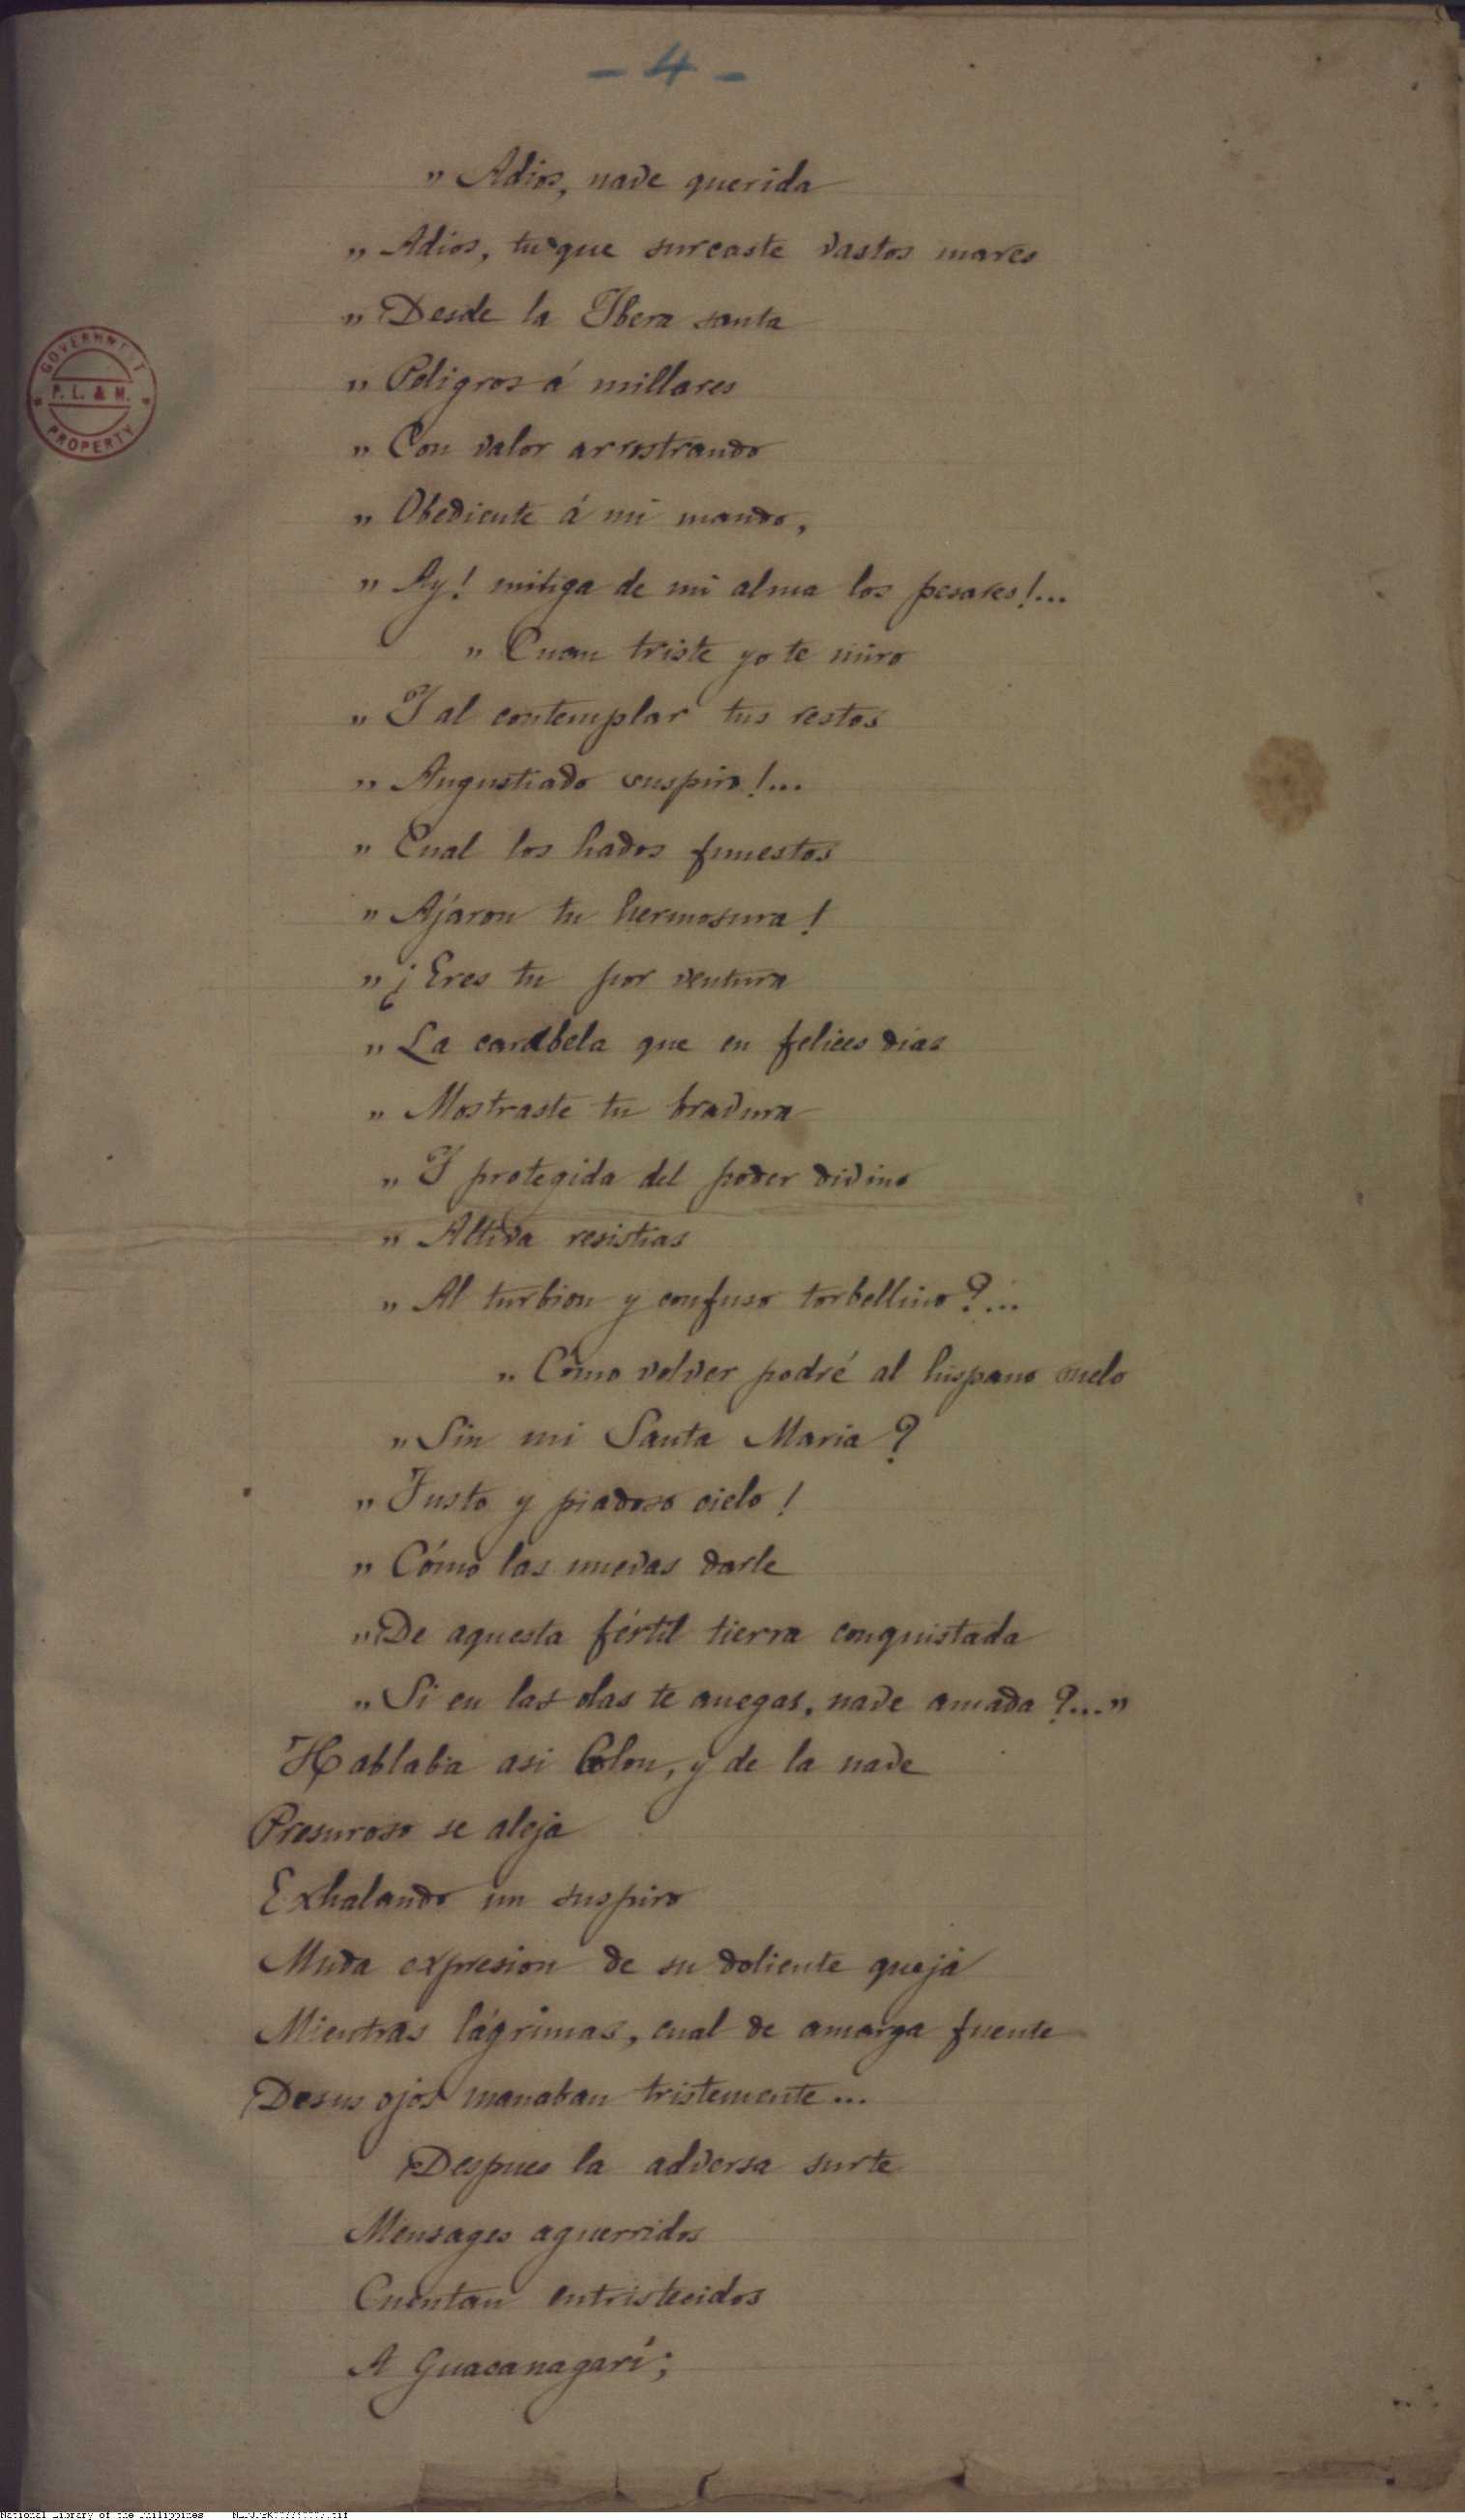 - 4 -
„ Adios, nave querida
„ Adios, tu que surcaste vastos mares
„ Desde la Ibera santa
GOVERNMENT
P. L. & M.
PROPERTY
„ Peligros á millares
„ Con valor arrostrando
„ Obediente á mi mando,
„ Ay! mitiga de mi alma los pesares!...
„ Cuan triste yo te miro
„ Y al contemplar tus restos
„ Angustiado suspiro!...
„ Cual los hados funestos
„ Ajaron tu hermosura!
„ ¿Eres tu por ventura
„ La carabela que en felices dias
„ Mostraste tu bravura
„ Y protegida del poder divino
„ Altiva resistias
„ Al turbion y confuso torbellino?...
„ Cómo volver podré al hispano suelo
„ Sin mi Santa Maria?
„ Justo y piadoso cielo!
„ Cómo las nuevas darle
„ De aquesta fértil tierra conquistada
„ Si en las olas te anegas, nave amada?...”
Hablaba asi Colon, y de la nave
Presuroso se aleja
Exhalando un suspiro
Muda expresion de su doliente queja
Mientras lágrimas, cual de amarga fuente
De sus ojos manaban tristemente...
Despues la adversa surte
Mensages aguerridos
Cuentan entristecidos
A Guacanagarí;
National Library of the Philippines